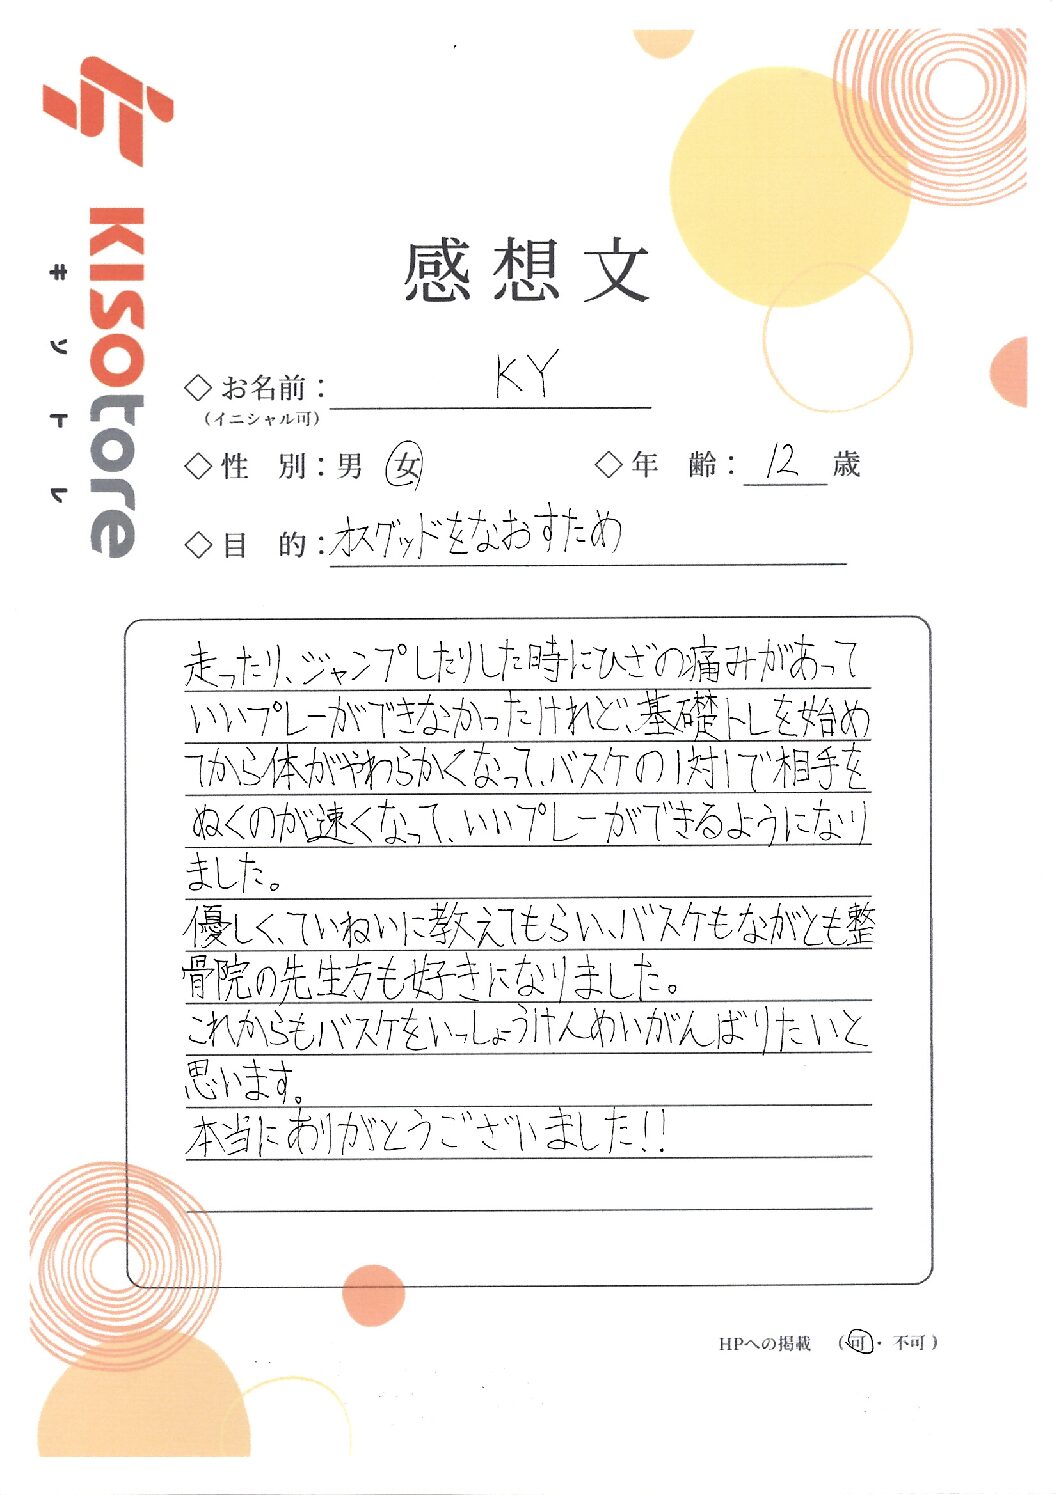 KISOtore
キソトレ
感想文
◇お名前： KY
（イニシャル可）
◇性　別：男 女　◇年　齢： 12 歳
◇目　的：オスグッドをなおすため
走ったり、ジャンプしたりした時にひざの痛みがあって
いいプレーができなかったけれど、基礎トレを始め
てから体がやわらかくなって、バスケの1対1で相手を
ぬくのが速くなって、いいプレーができるようになり
ました。
優しく、ていねいに教えてもらい、バスケもながとも整
骨院の先生方も好きになりました。
これからもバスケをいっしょうけんめいがんばりたいと
思います。
本当にありがとうございました!!
HPへの掲載　（可・不可）